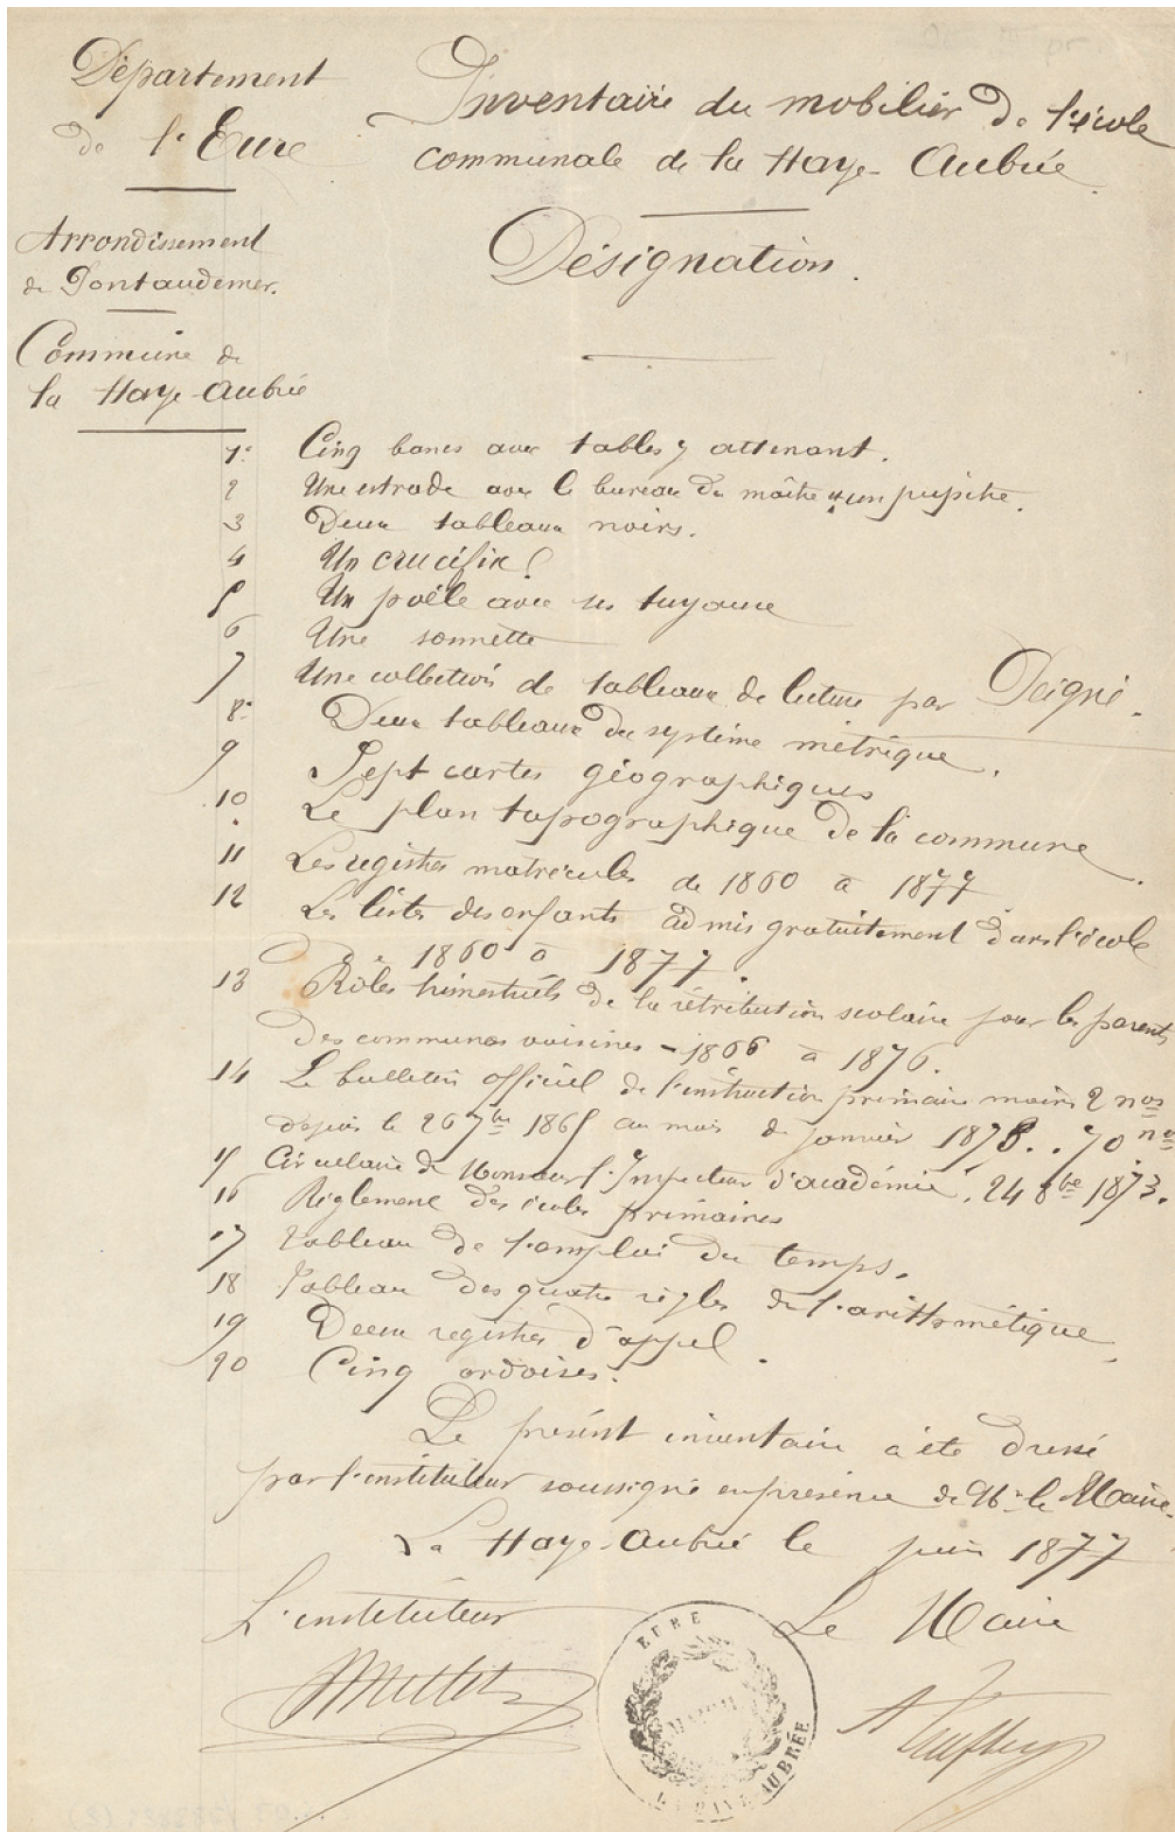 Département
de l'Eure
Arrondissement
de Pontaudemer.
Commune de
la Haye-Aubrée
Inventaire du mobilier de l'école
communale de la Haye-Aubrée.
Désignation.
1° Cinq bancs avec tables y attenant.
2 Une estrade avec le bureau du maître et un pupitre.
3 Deux tableaux noirs.
4 Un crucifix.
5 Un poële avec ses tuyaux
6 Une sonnette
7 Une collection de tableaux de lecture par Peigné.
8° Deux tableaux du système métrique.
9 Sept cartes géographiques
10 Le plan topographique de la commune.
11 Les registres matricules de 1860 à 1877
12 Les listes des enfants admis gratuitement dans l'école
de 1860 à 1877.
13 Rôles trimestriels de la rétribution scolaire pour les parents
des communes voisines - 1866 à 1876.
14 Le bulletin officiel de l'instruction primaire moins 2 nos
depuis le 26 7bre 1865 au mois de janvier 1878.. 70 nos
15 Circulaire de Monsieur l'Inspecteur d'académie. 24 8bre 1873.
16 Règlement des écoles primaires
17 Tableau de l'emploi du temps.
18 Tableau des quatre règles de l'arithmétique.
19 Deux registres d'appel.
20 Cinq ardoises.
Le présent inventaire a été dressé
par l'instituteur soussigné en présence de Mr le Maire.
La Haye-Aubrée le juin 1877
L'instituteur
Le Maire
EURE
MAIRIE
LA HAYE-AUBRÉE